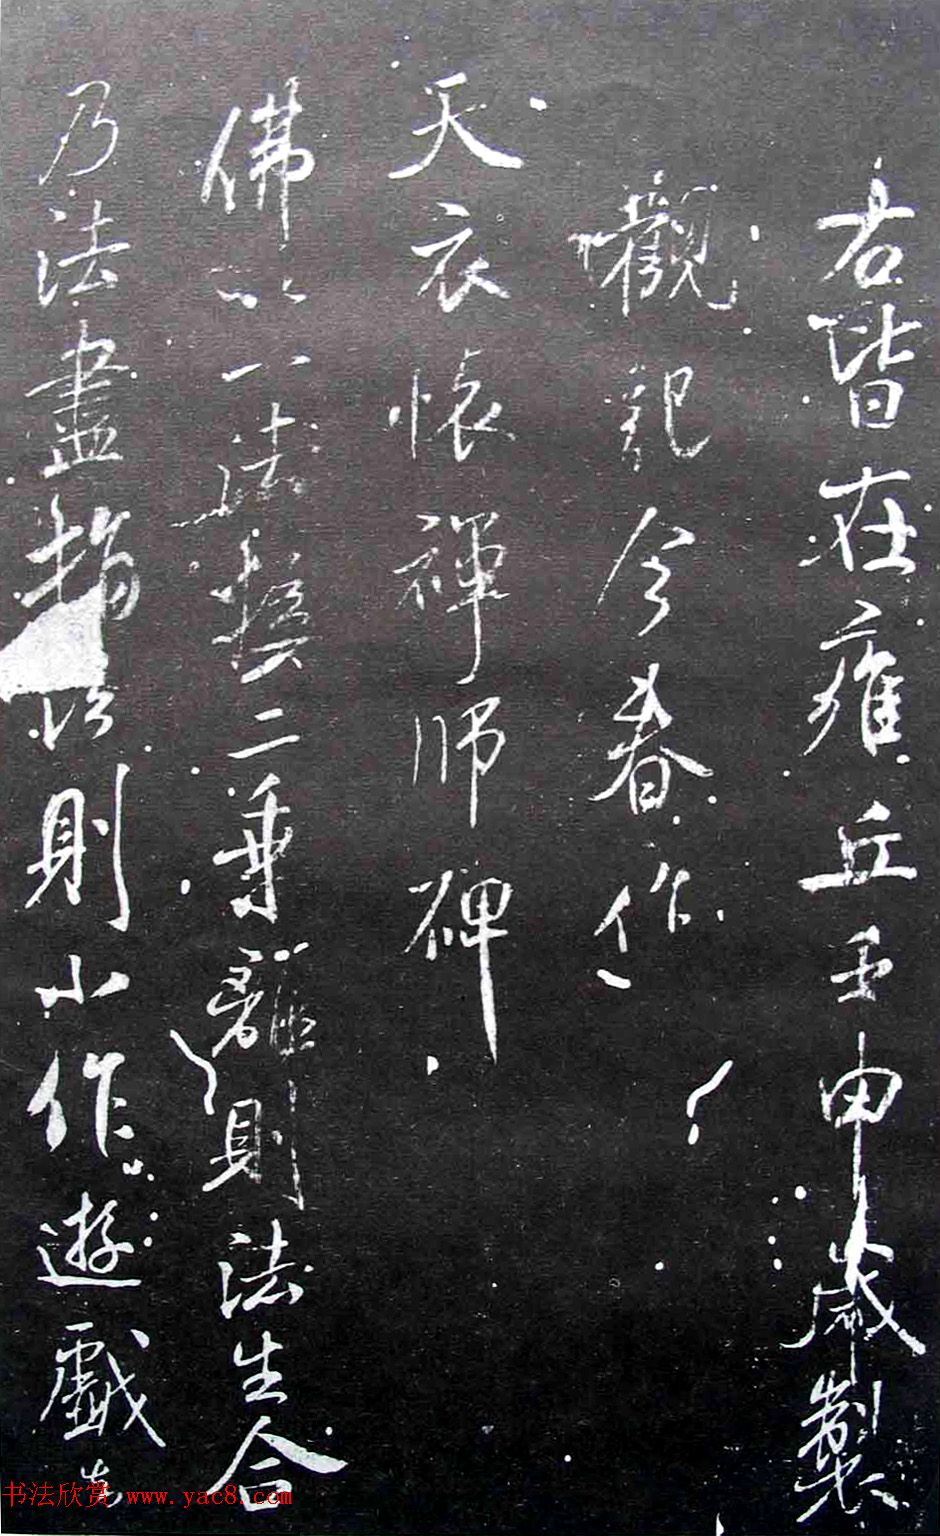 右皆在雍丘壬申歲製
觀記今春作
天衣懷禪師碑
佛以一法授二乘離則法生合
乃法盡揚以則小作遊戲去
书法欣赏 www.yac8.com